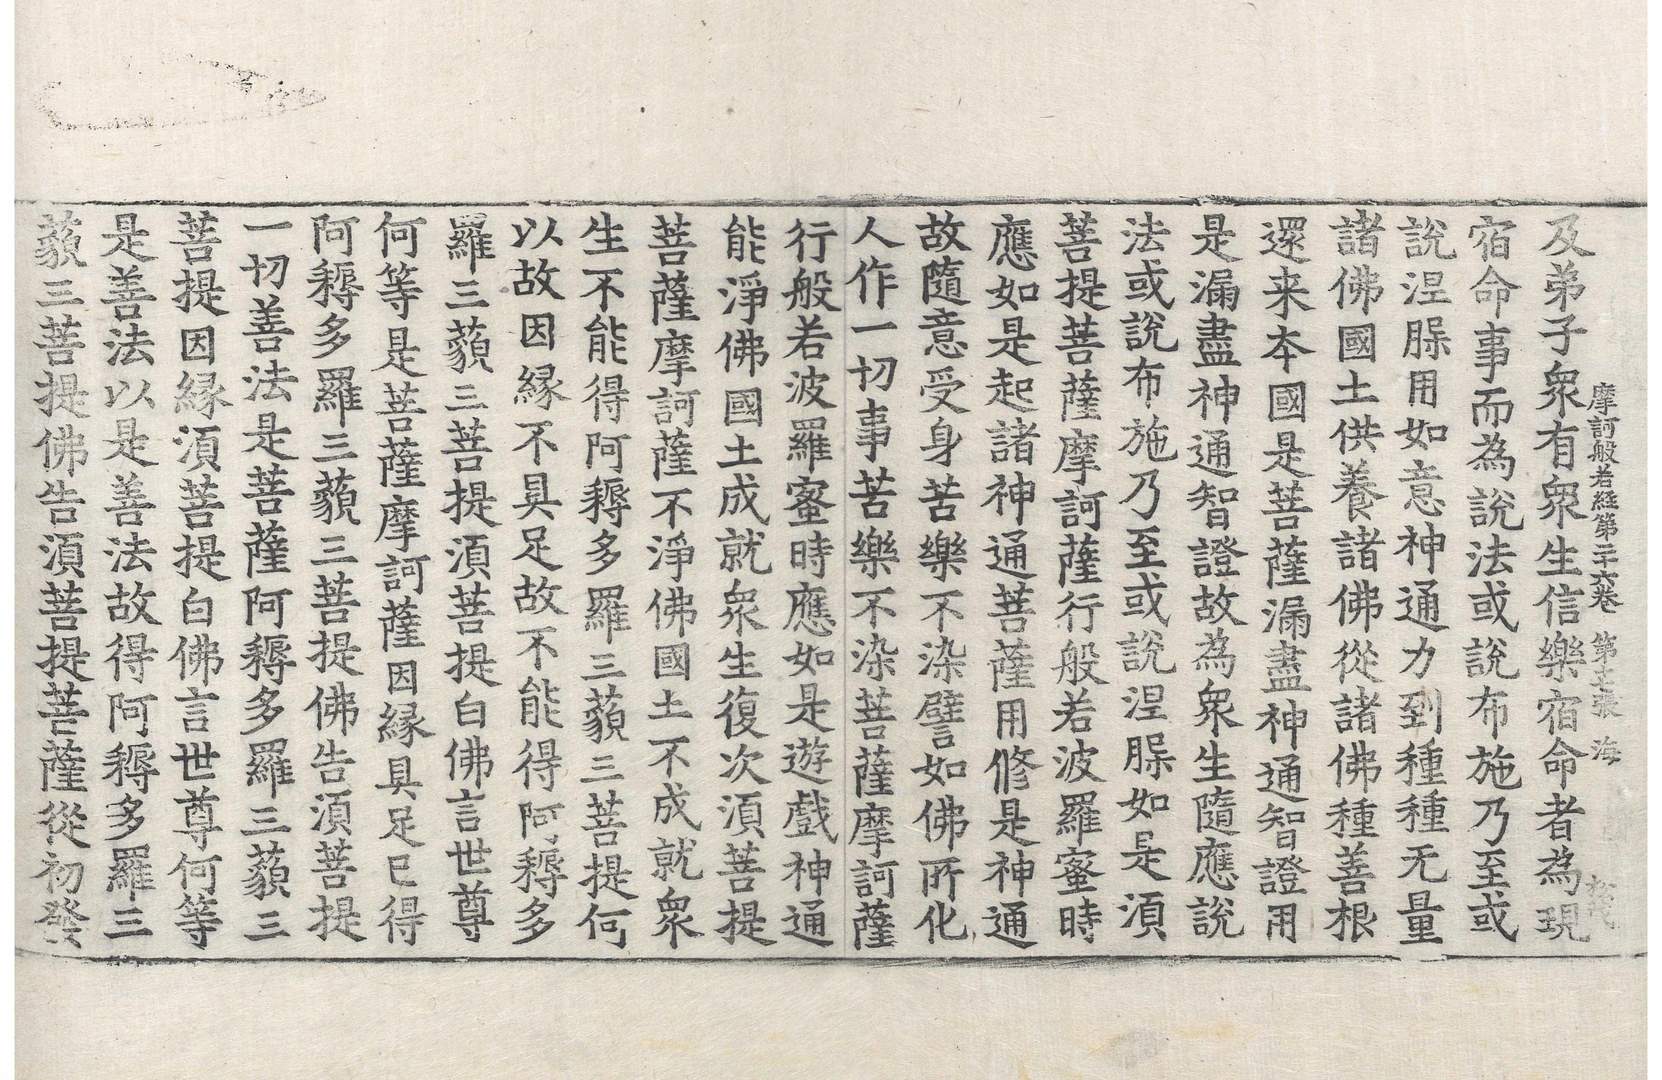 摩訶般若經第二十六卷　第十五張　海
及弟子衆有衆生信樂宿命者為現
宿命事而為說法或說布施乃至或
說涅槃用如意神通力到種種无量
諸佛國土供養諸佛從諸佛種善根
還来本國是菩薩漏盡神通智證用
是漏盡神通智證故為衆生隨應說
法或說布施乃至或說涅槃如是湏
菩提菩薩摩訶薩行般若波羅蜜時
應如是起諸神通菩薩用修是神通
故隨意受身苦樂不染譬如佛所化
人作一切事苦樂不染菩薩摩訶薩
行般若波羅蜜時應如是遊戲神通
能淨佛國土成就衆生復次湏菩提
菩薩摩訶薩不淨佛國土不成就衆
生不能得阿耨多羅三藐三菩提何
以故因緣不具足故不能得阿耨多
羅三藐三菩提湏菩提白佛言世尊
何等是菩薩摩訶薩因緣具足已得
阿耨多羅三藐三菩提佛告湏菩提
一切善法是菩薩阿耨多羅三藐三
菩提因緣湏菩提白佛言世尊何等
是善法以是善法故得阿耨多羅三
藐三菩提佛告湏菩提菩薩從初發